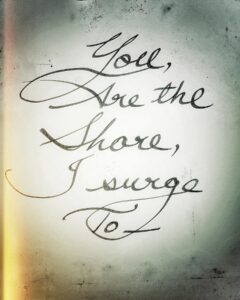 You,
Are the
Shore,
I surge
To